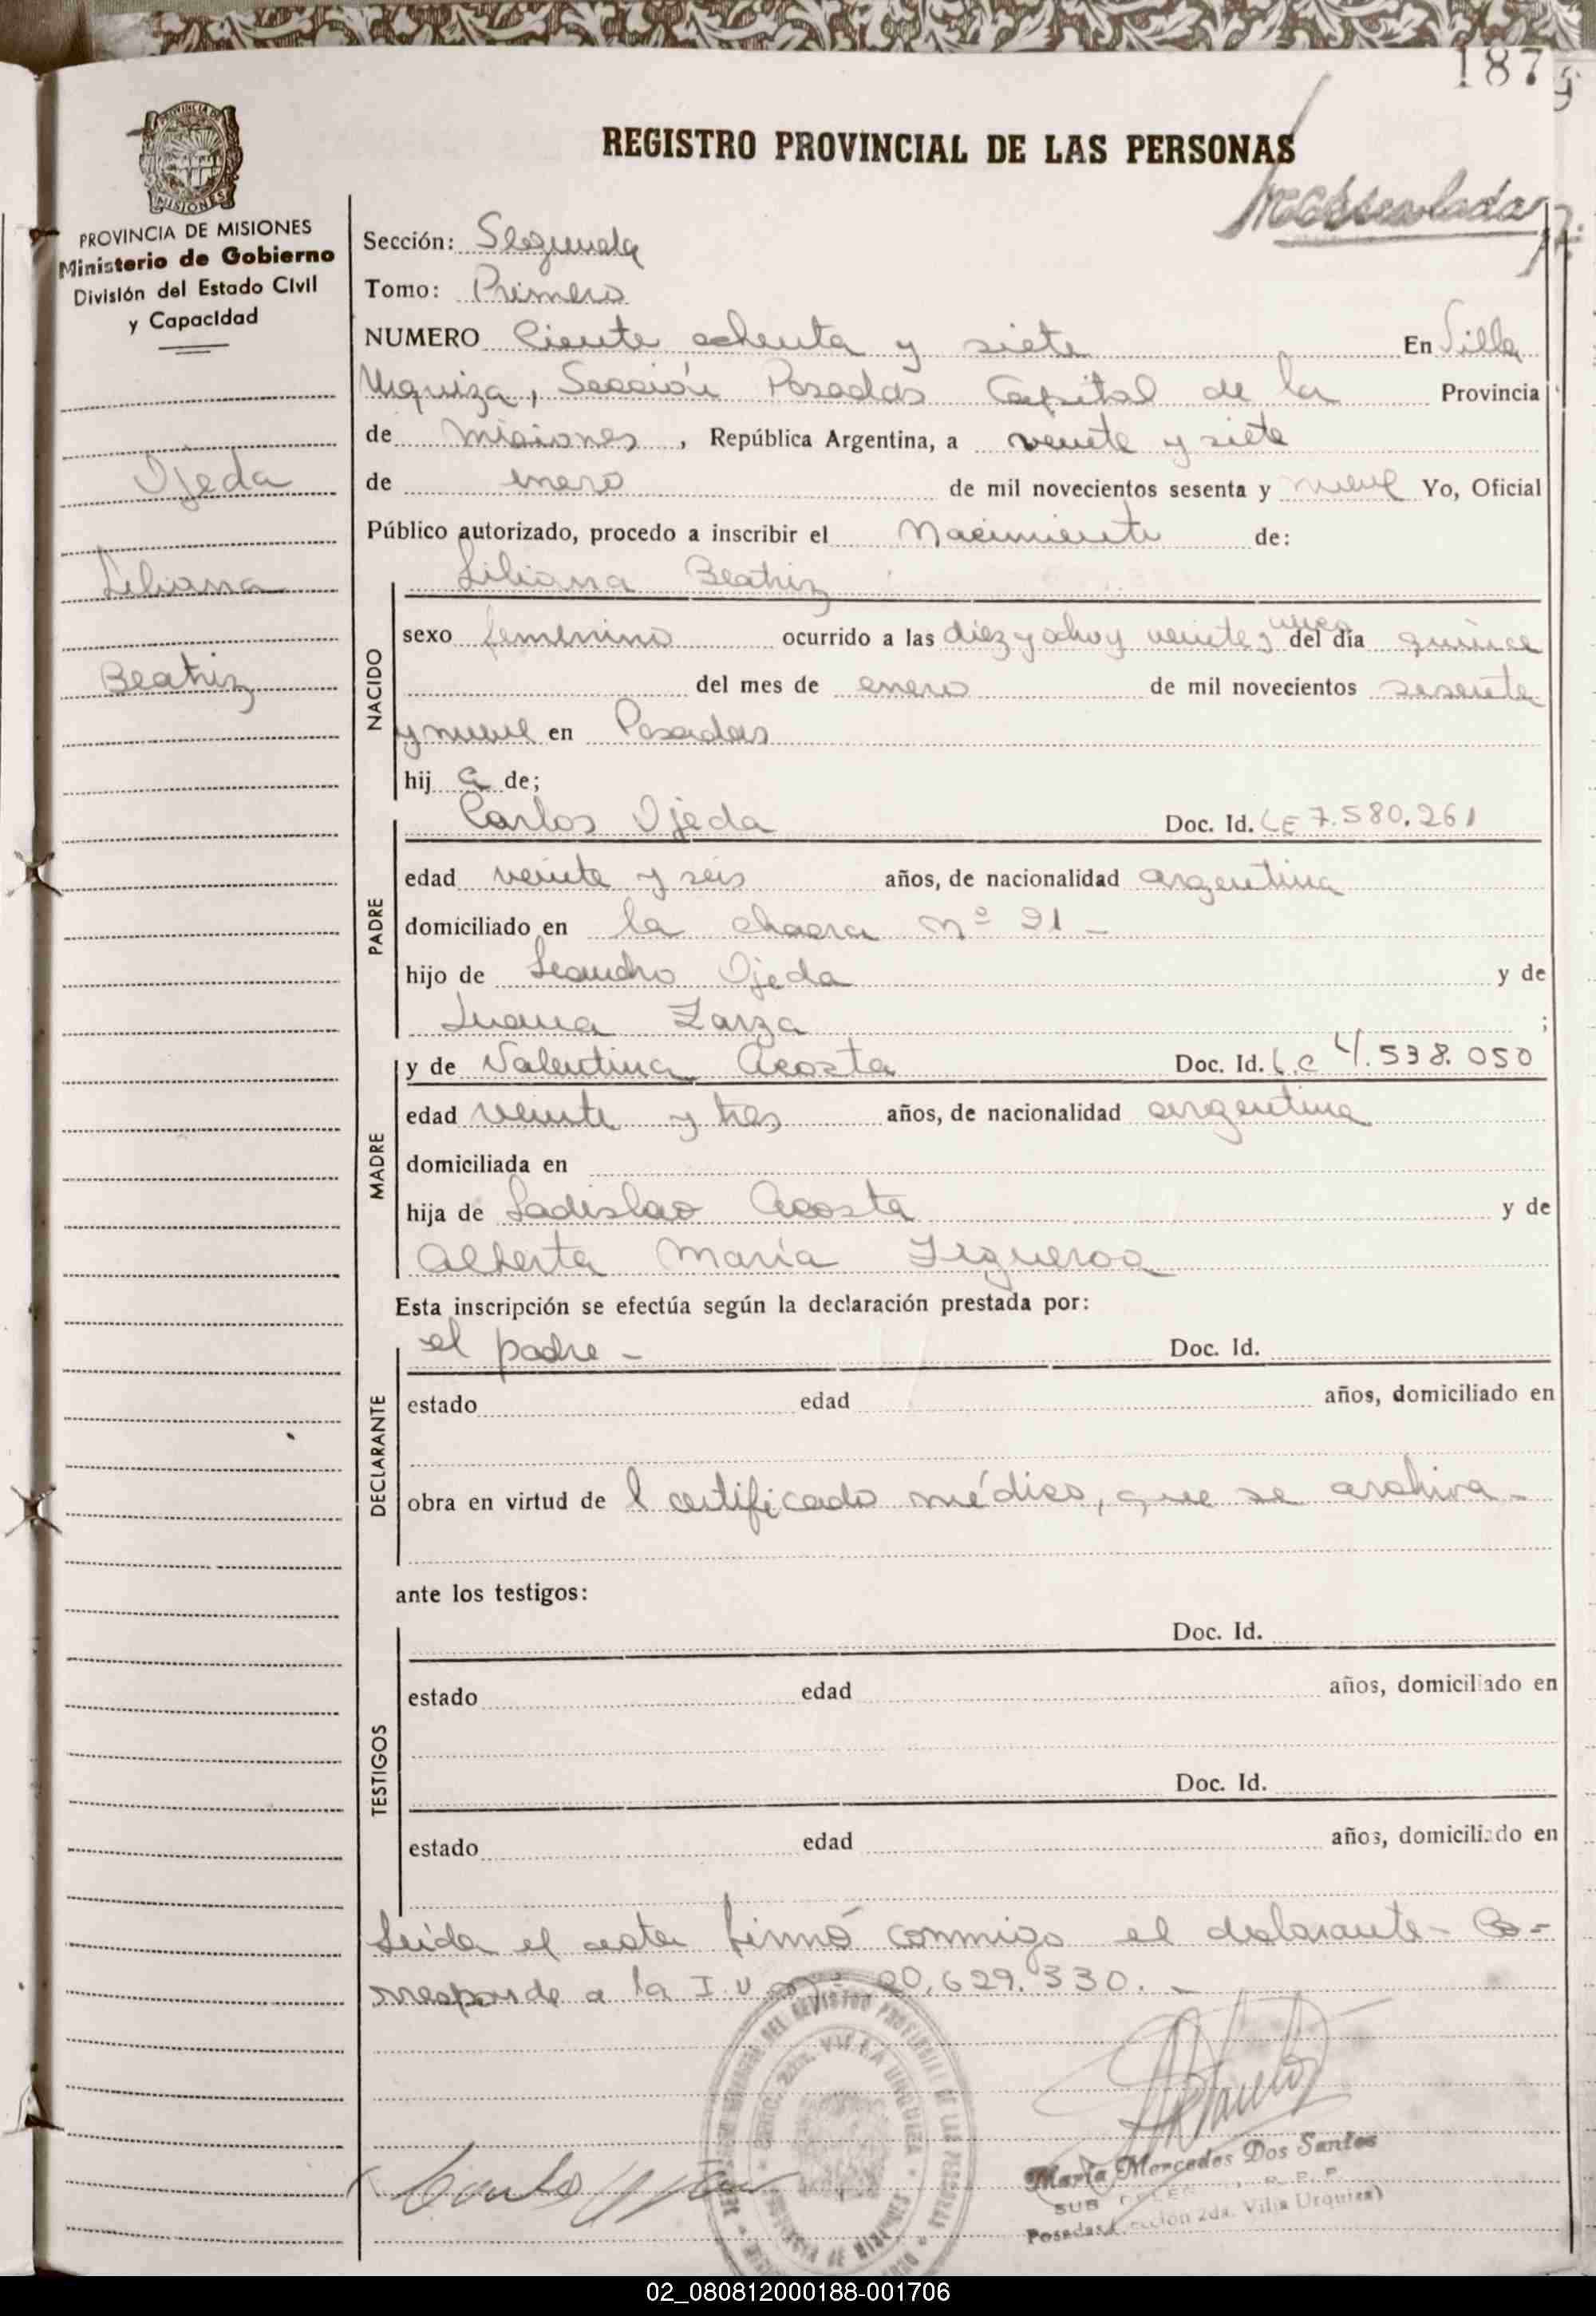 187
REGISTRO PROVINCIAL DE LAS PERSONAS
MISIONES
PROVINCIA DE MISIONES
Ministerio de Gobierno
División del Estado Civil
y Capacidad
Ojeda
Liliana
Beatriz
Sección: Segunda
Tomo: Primero
NUMERO Ciento ochenta y siete En Villa
Urquiza, Sección Posadas Capital de la Provincia
de misiones, República Argentina, a veinte y siete
de enero de mil novecientos sesenta y nueve Yo, Oficial
Público autorizado, procedo a inscribir el Nacimiento de:
Liliana Beatriz
NACIDO
sexo femenino ocurrido a las diez y ocho y veinte y cinco del día quince
del mes de enero de mil novecientos sesenta
y nueve en Posadas
hij a de;
PADRE
Carlos Ojeda Doc. Id. LE 7.580.261
edad veinte y seis años, de nacionalidad argentina
domiciliado en la chacra nº 91 -
hijo de Leandro Ojeda y de
Juana Zarza ;
MADRE
y de Valentina Acosta Doc. Id. LC 4.538.050
edad veinte y tres años, de nacionalidad argentina
domiciliada en
hija de Ladislao Acosta y de
Alberta María Figueroa
Esta inscripción se efectúa según la declaración prestada por:
DECLARANTE
el padre - Doc. Id.
estado edad años, domiciliado en
obra en virtud de l certificado médico, que se archiva -
ante los testigos:
TESTIGOS
Doc. Id.
estado edad años, domiciliado en
Doc. Id.
estado edad años, domiciliado en
Leida el acta firmó conmigo el declarante - Co=
rresponde a la I.U. nº 20.629.330. -
María Mercedes Dos Santos
SUB
Posadas (Sección 2da. Villa Urquiza)
VILLA URQUIZA
02_080812000188-001706